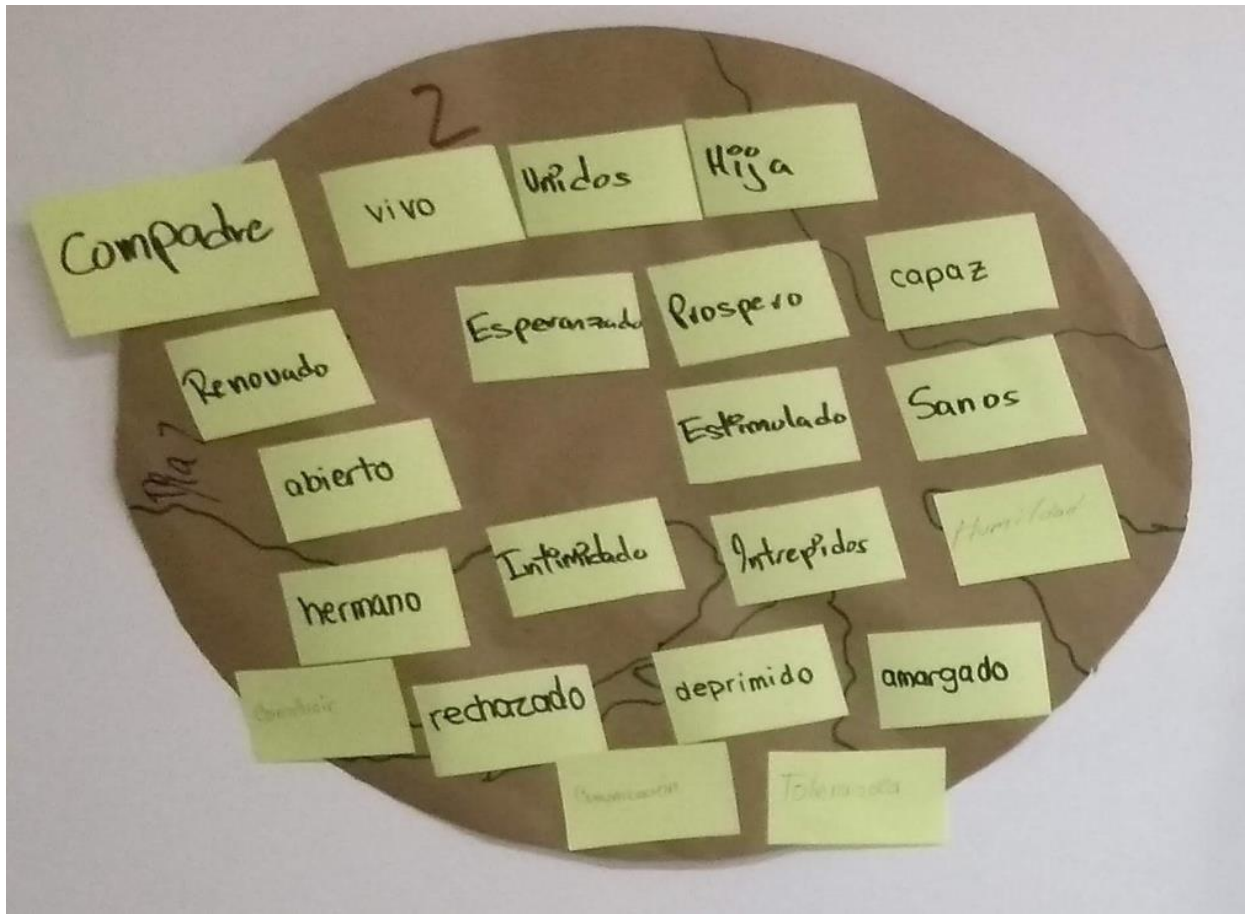 2
Compadre
vivo
Unidos
Hija
Esperanzado
Prospero
capaz
Renovado
Estimulado
Sanos
abierto
Intimidado
Intrepidos
Humildad
hermano
rechazado
deprimido
amargado
Comunicación
Tolerancia